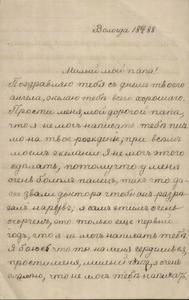 Вологда 18 88
Милый мой папа!
Поздравляю тебя съ днемъ твоего
ангела, желаю тебѣ всего хорошаго.
Прости меня, мой дорогой папа,
что я не могъ написать тебѣ пись
мо на твое рожденіе, при всемъ
моемъ желаніи я не могъ этого
сдѣлать, потомучто у меня
очень болѣлъ палецъ, такъ что
звали доктора чтобы онъ разрѣ
залъ нарывъ, я самъ этимъ очень
огорченъ, это только еще первый
годъ, что я не могъ написать тебѣ
Я боюсь что ты на меня сердишься,
прости меня, милый папа, я очень
жалѣю, что не могъ тебѣ написать